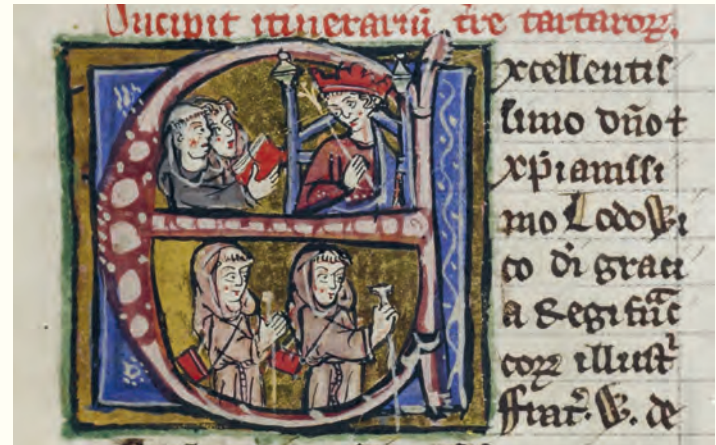 Incipit itinerariū t̄re tartaroꝝ.
Excellentis
simo dño ⁊
xp̄ianissi
mo Lodowi
co d̄i grati
a Regi frāc
coꝝ illustꝰ
ffrat̄. W. de